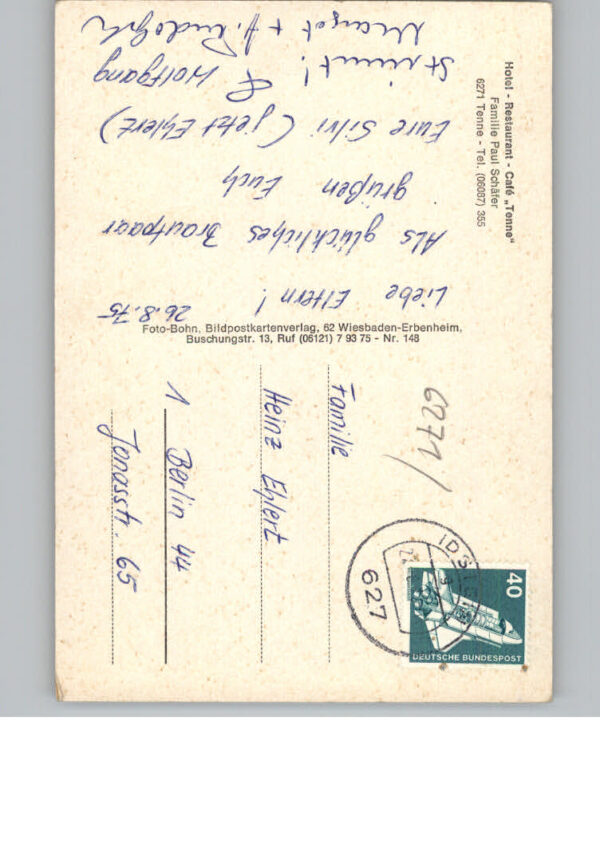 Hotel - Restaurant - Café „Tenne"
Familie Paul Schäfer
6271 Tenne - Tel. (06087) 355
26.8.75
Liebe Eltern!
Als glückliches Brautpaar
grüßen Euch
Eure Silvi (jetzt Ehlert)
& Wolfgang
Stimmt!
Margot + H. Rudolph
Foto-Bohn, Bildpostkartenverlag, 62 Wiesbaden-Erbenheim,
Buschungstr. 13, Ruf (06121) 7 93 75 - Nr. 148
6271/
40
DEUTSCHE BUNDESPOST
627
Familie
Heinz Ehlert
1 Berlin 44
Jonasstr. 65